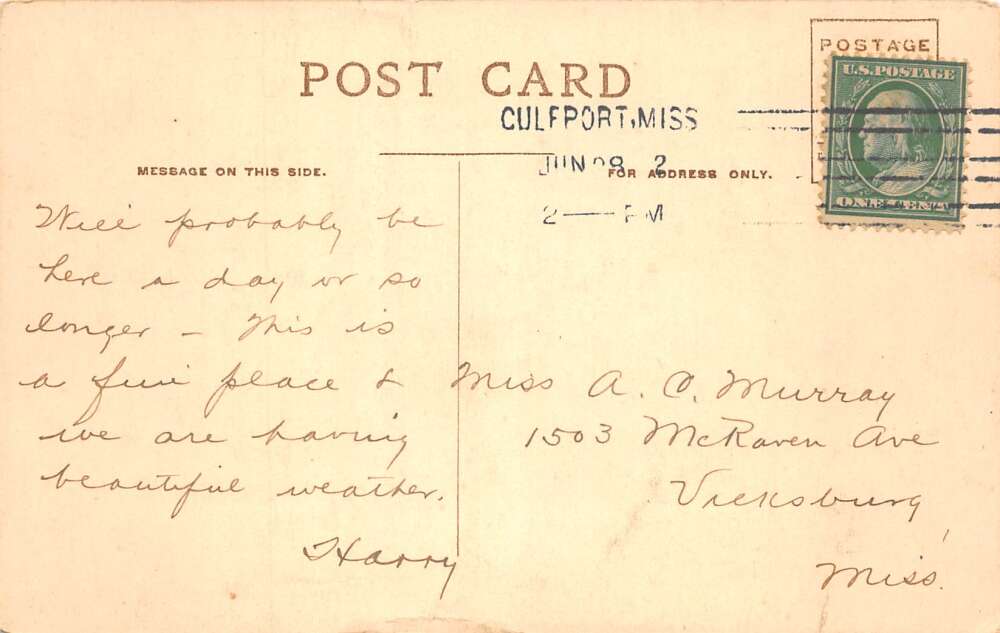 POST CARD
POSTAGE
U.S. POSTAGE
ONE CENT
GULFPORT, MISS
JUN 28 2
2 — PM
MESSAGE ON THIS SIDE.
FOR ADDRESS ONLY.
Will probably be
here a day or so
longer – This is
a fine place &
we are having
beautiful weather.
Harry
Miss A. C. Murray
1503 McRaven Ave
Vicksburg,
Miss.